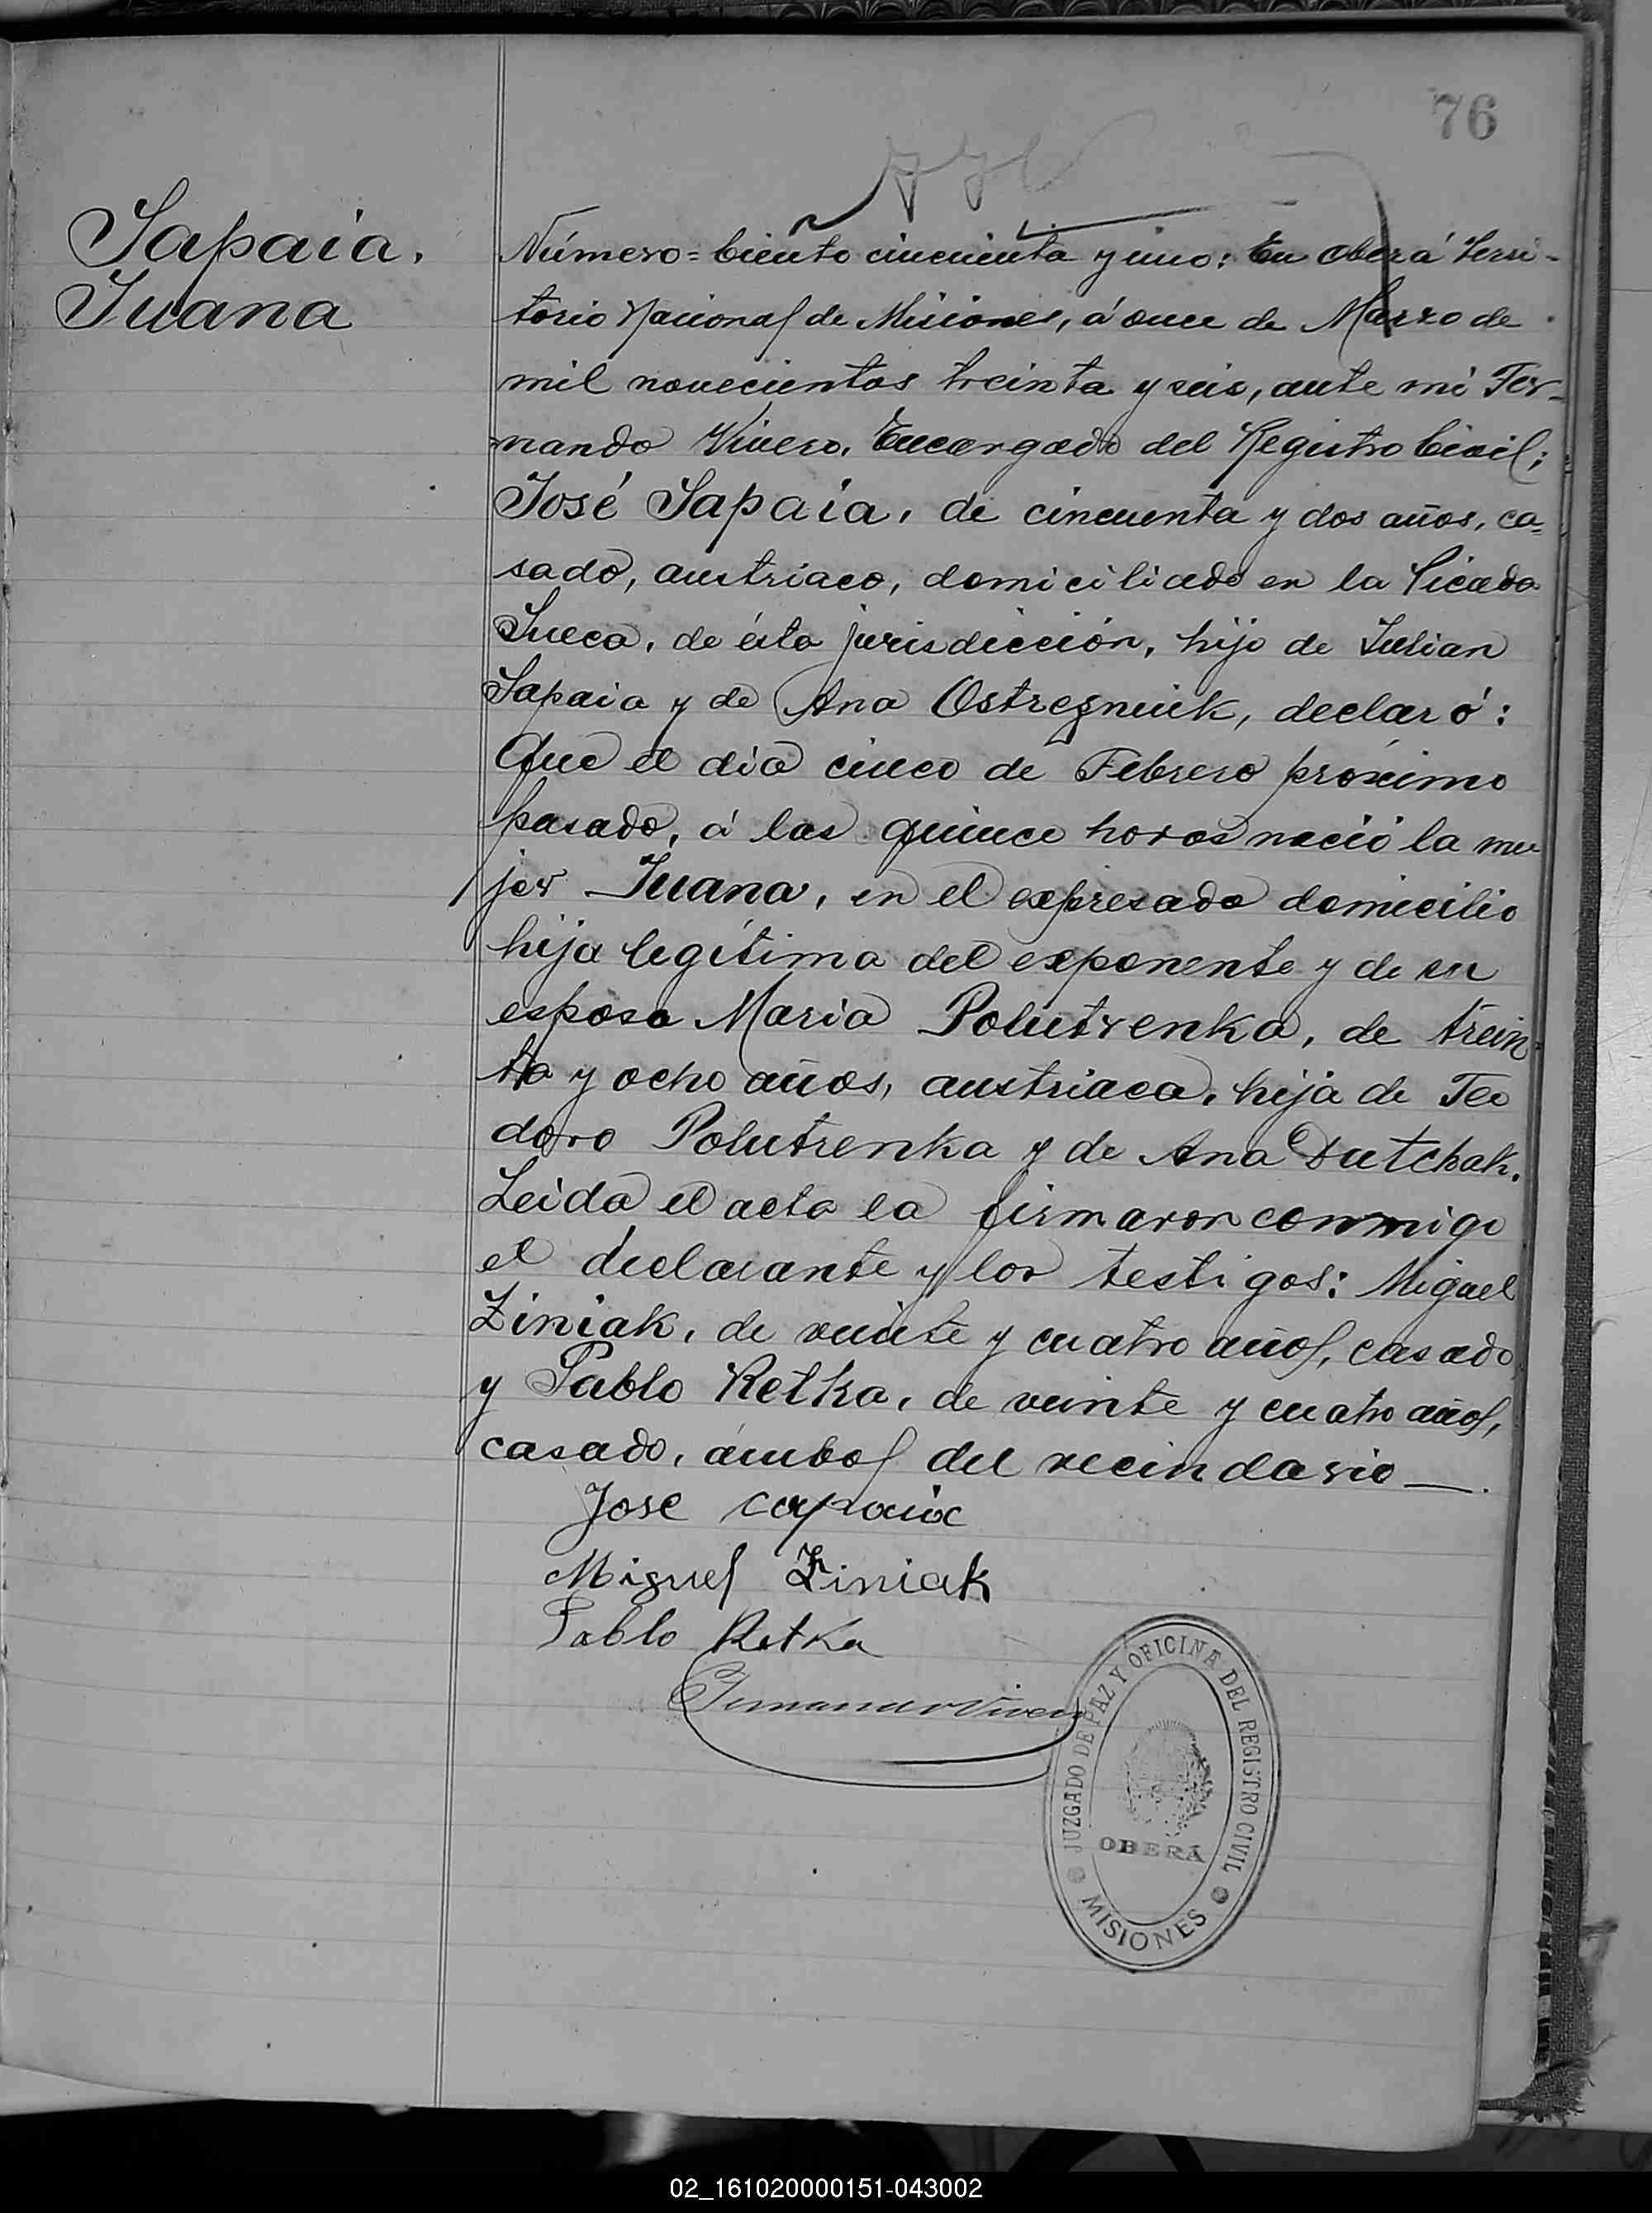 76
Sapaia,
Juana
Número = Ciento cincuenta y uno: En Oberá Terri-
torio Nacional de Misiones, á once de Marzo de
mil novecientos treinta y seis, ante mi Fer-
nando Vivero, Encargado del Registro Civil;
José Sapaia, de cincuenta y dos años, ca-
sado, austriaco, domiciliado en la Picada
Sueca, de ésta jurisdicción, hijo de Julian
Sapaia y de Ana Ostregnuik, declaró:
Que el dia cinco de Febrero próximo
pasado, á las quince horas nació la mu
jer Juana, en el expresado domicilio
hija legítima del exponente y de su
esposa Maria Polutrenka, de trein-
ta y ocho años, austriaca, hija de Teo
doro Polutrenka y de Ana Dutchak.
Leida el acta la firmaron conmigo
el declarante y los testigos: Miguel
Ziniak, de veinte y cuatro años, casado
y Pablo Retka, de veinte y cuatro años,
casado, ámbos del vecindario —.
Jose capaia
Miguel Ziniak
Pablo Retka
Fernando Vivero
JUZGADO DE PAZ Y OFICINA DEL REGISTRO CIVIL
OBERÁ
MISIONES
02_161020000151-043002